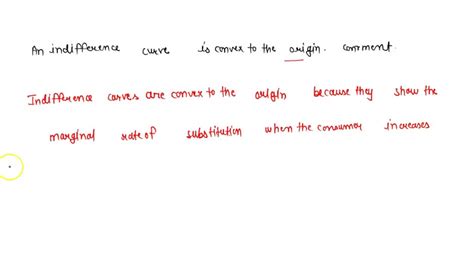 An indifference curve is convex to the origin. comment.
Indifference curves are convex to the origin because they show the
marginal rate of substitution when the consumer increases